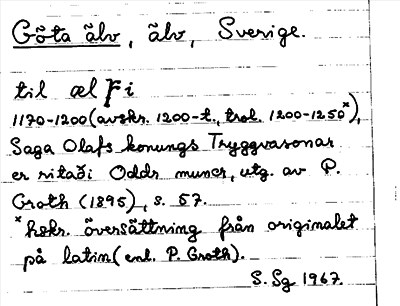 Göta älv, älv, Sverige.
til ælfi
1170-1200 (avskr. 1200-t., trol. 1200-1250*),
Saga Olafs konungs Tryggvasonar
er ritaði Oddr muncr, utg. av P.
Groth (1895), s. 57.
* hskr. översättning från originalet
på latin (enl. P. Groth).
S. Sg 1967.